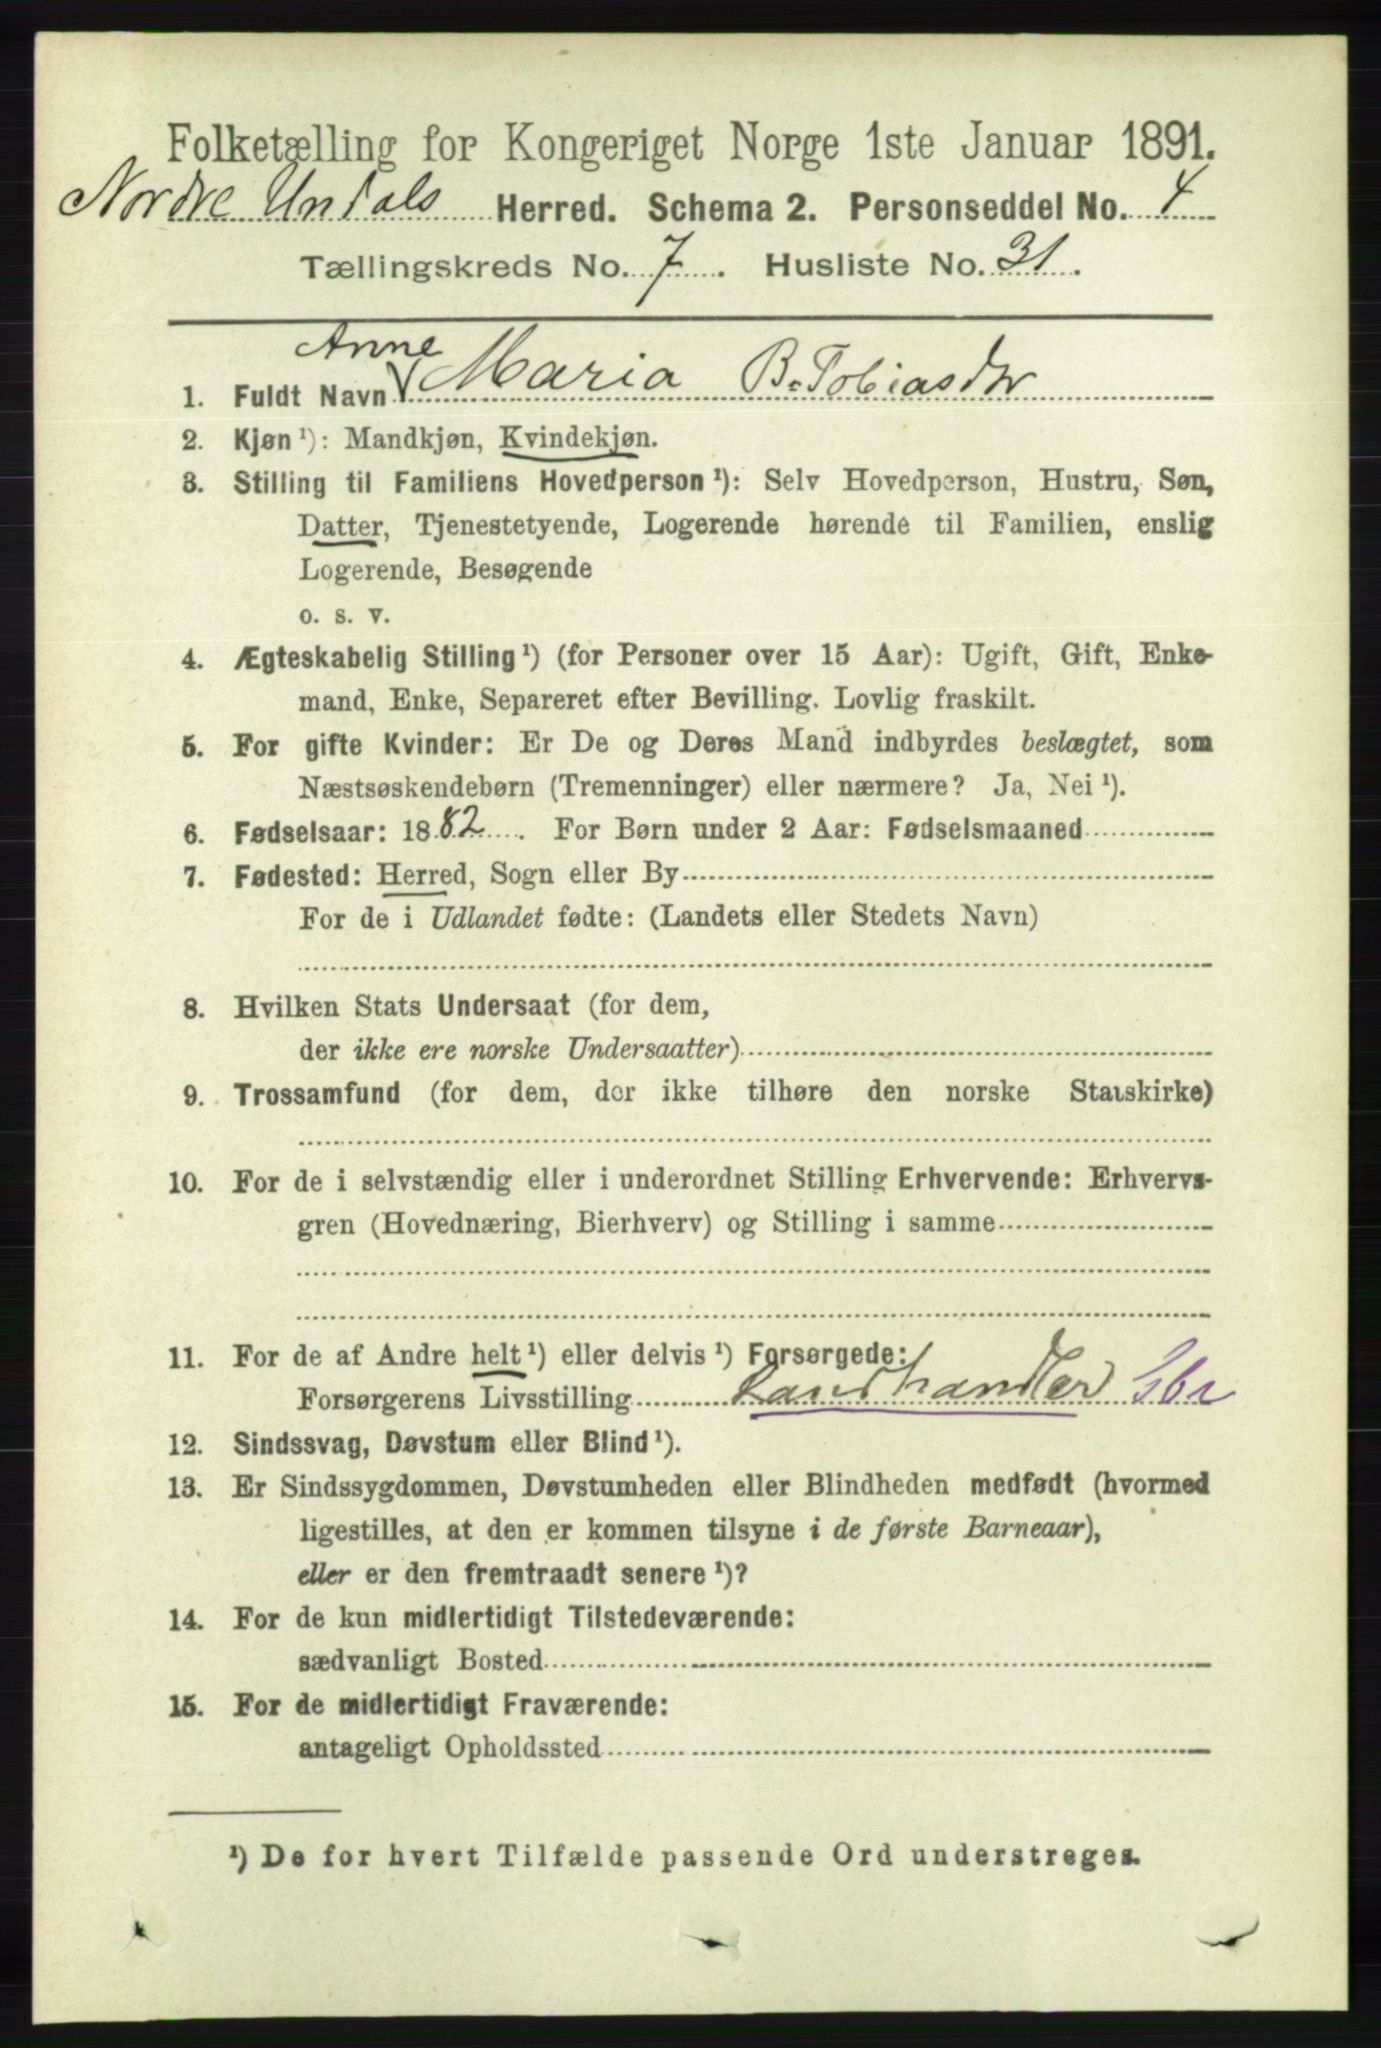 Folketælling for Kongeriget Norge 1ste Januar 1891.
Nordre Undals Herred. Schema 2. Personseddel No. 4
Tællingskreds No. 7. Husliste No. 31.
Anne
1. Fuldt Navn Maria B. Tobiasdtr
2. Kjøn ¹): Mandkjøn, Kvindekjøn.
3. Stilling til Familiens Hovedperson ¹): Selv Hovedperson, Hustru, Søn,
Datter, Tjenestetyende, Logerende hørende til Familien, enslig
Logerende, Besøgende
o. s. v.
4. Ægteskabelig Stilling ¹) (for Personer over 15 Aar): Ugift, Gift, Enke-
mand, Enke, Separeret efter Bevilling. Lovlig fraskilt.
5. For gifte Kvinder: Er De og Deres Mand indbyrdes beslægtet, som
Næstsøskendebørn (Tremenninger) eller nærmere? Ja, Nei ¹).
6. Fødselsaar: 1882. For Børn under 2 Aar: Fødselsmaaned
7. Fødested: Herred, Sogn eller By
For de i Udlandet fødte: (Landets eller Stedets Navn)
8. Hvilken Stats Undersaat (for dem,
der ikke ere norske Undersaatter)
9. Trossamfund (for dem, der ikke tilhøre den norske Statskirke)
10. For de i selvstændig eller i underordnet Stilling Erhvervende: Erhvervs-
gren (Hovednæring, Bierhverv) og Stilling i samme
11. For de af Andre helt ¹) eller delvis ¹) Forsørgede:
Forsørgerens Livsstilling Landhandler
12. Sindssvag, Døvstum eller Blind ¹).
13. Er Sindssygdommen, Døvstumheden eller Blindheden medfødt (hvormed
ligestilles, at den er kommen tilsyne i de første Barneaar),
eller er den fremtraadt senere ¹)?
14. For de kun midlertidigt Tilstedeværende:
sædvanligt Bosted
15. For de midlertidigt Fraværende:
antageligt Opholdssted
¹) De for hvert Tilfælde passende Ord understreges.